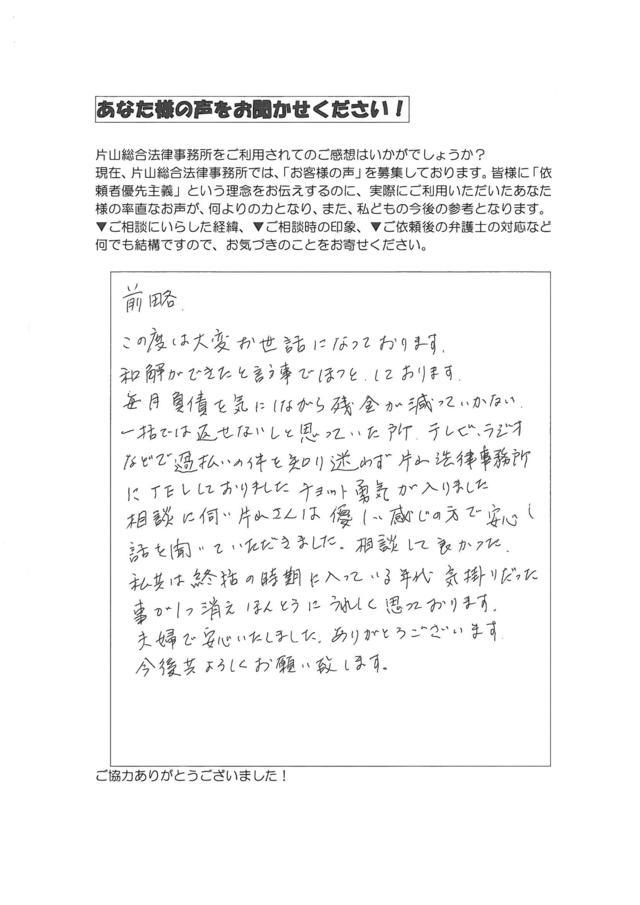 あなた様の声をお聞かせください！
片山総合法律事務所をご利用されてのご感想はいかがでしょうか？
現在、片山総合法律事務所では、「お客様の声」を募集しております。皆様に「依
頼者優先主義」という理念をお伝えするのに、実際にご利用いただいたあなた
様の率直なお声が、何よりの力となり、また、私どもの今後の参考となります。
▼ご相談にいらした経緯、▼ご相談時の印象、▼ご依頼後の弁護士の対応など
何でも結構ですので、お気づきのことをお寄せください。
前略
この度は大変お世話になっております。
和解ができたと言う事でほっと、しております。
毎月負債を気にしながら残金が減っていかない、
一括では返せないしと思っていた所、テレビ、ラジオ
などで過払いの件を知り迷わず片山法律事務所
にTELしておりました チョット勇気が入りました
相談に伺い片山さんは優しい感じの方で安心し
話を聞いていただきました。相談して良かった。
私共は終括の時期に入っている年代 気掛りだった
事が1つ消えほんとうにうれしく思っております。
夫婦で安心いたしました。ありがとうございます。
今後共よろしくお願い致します。
ご協力ありがとうございました！